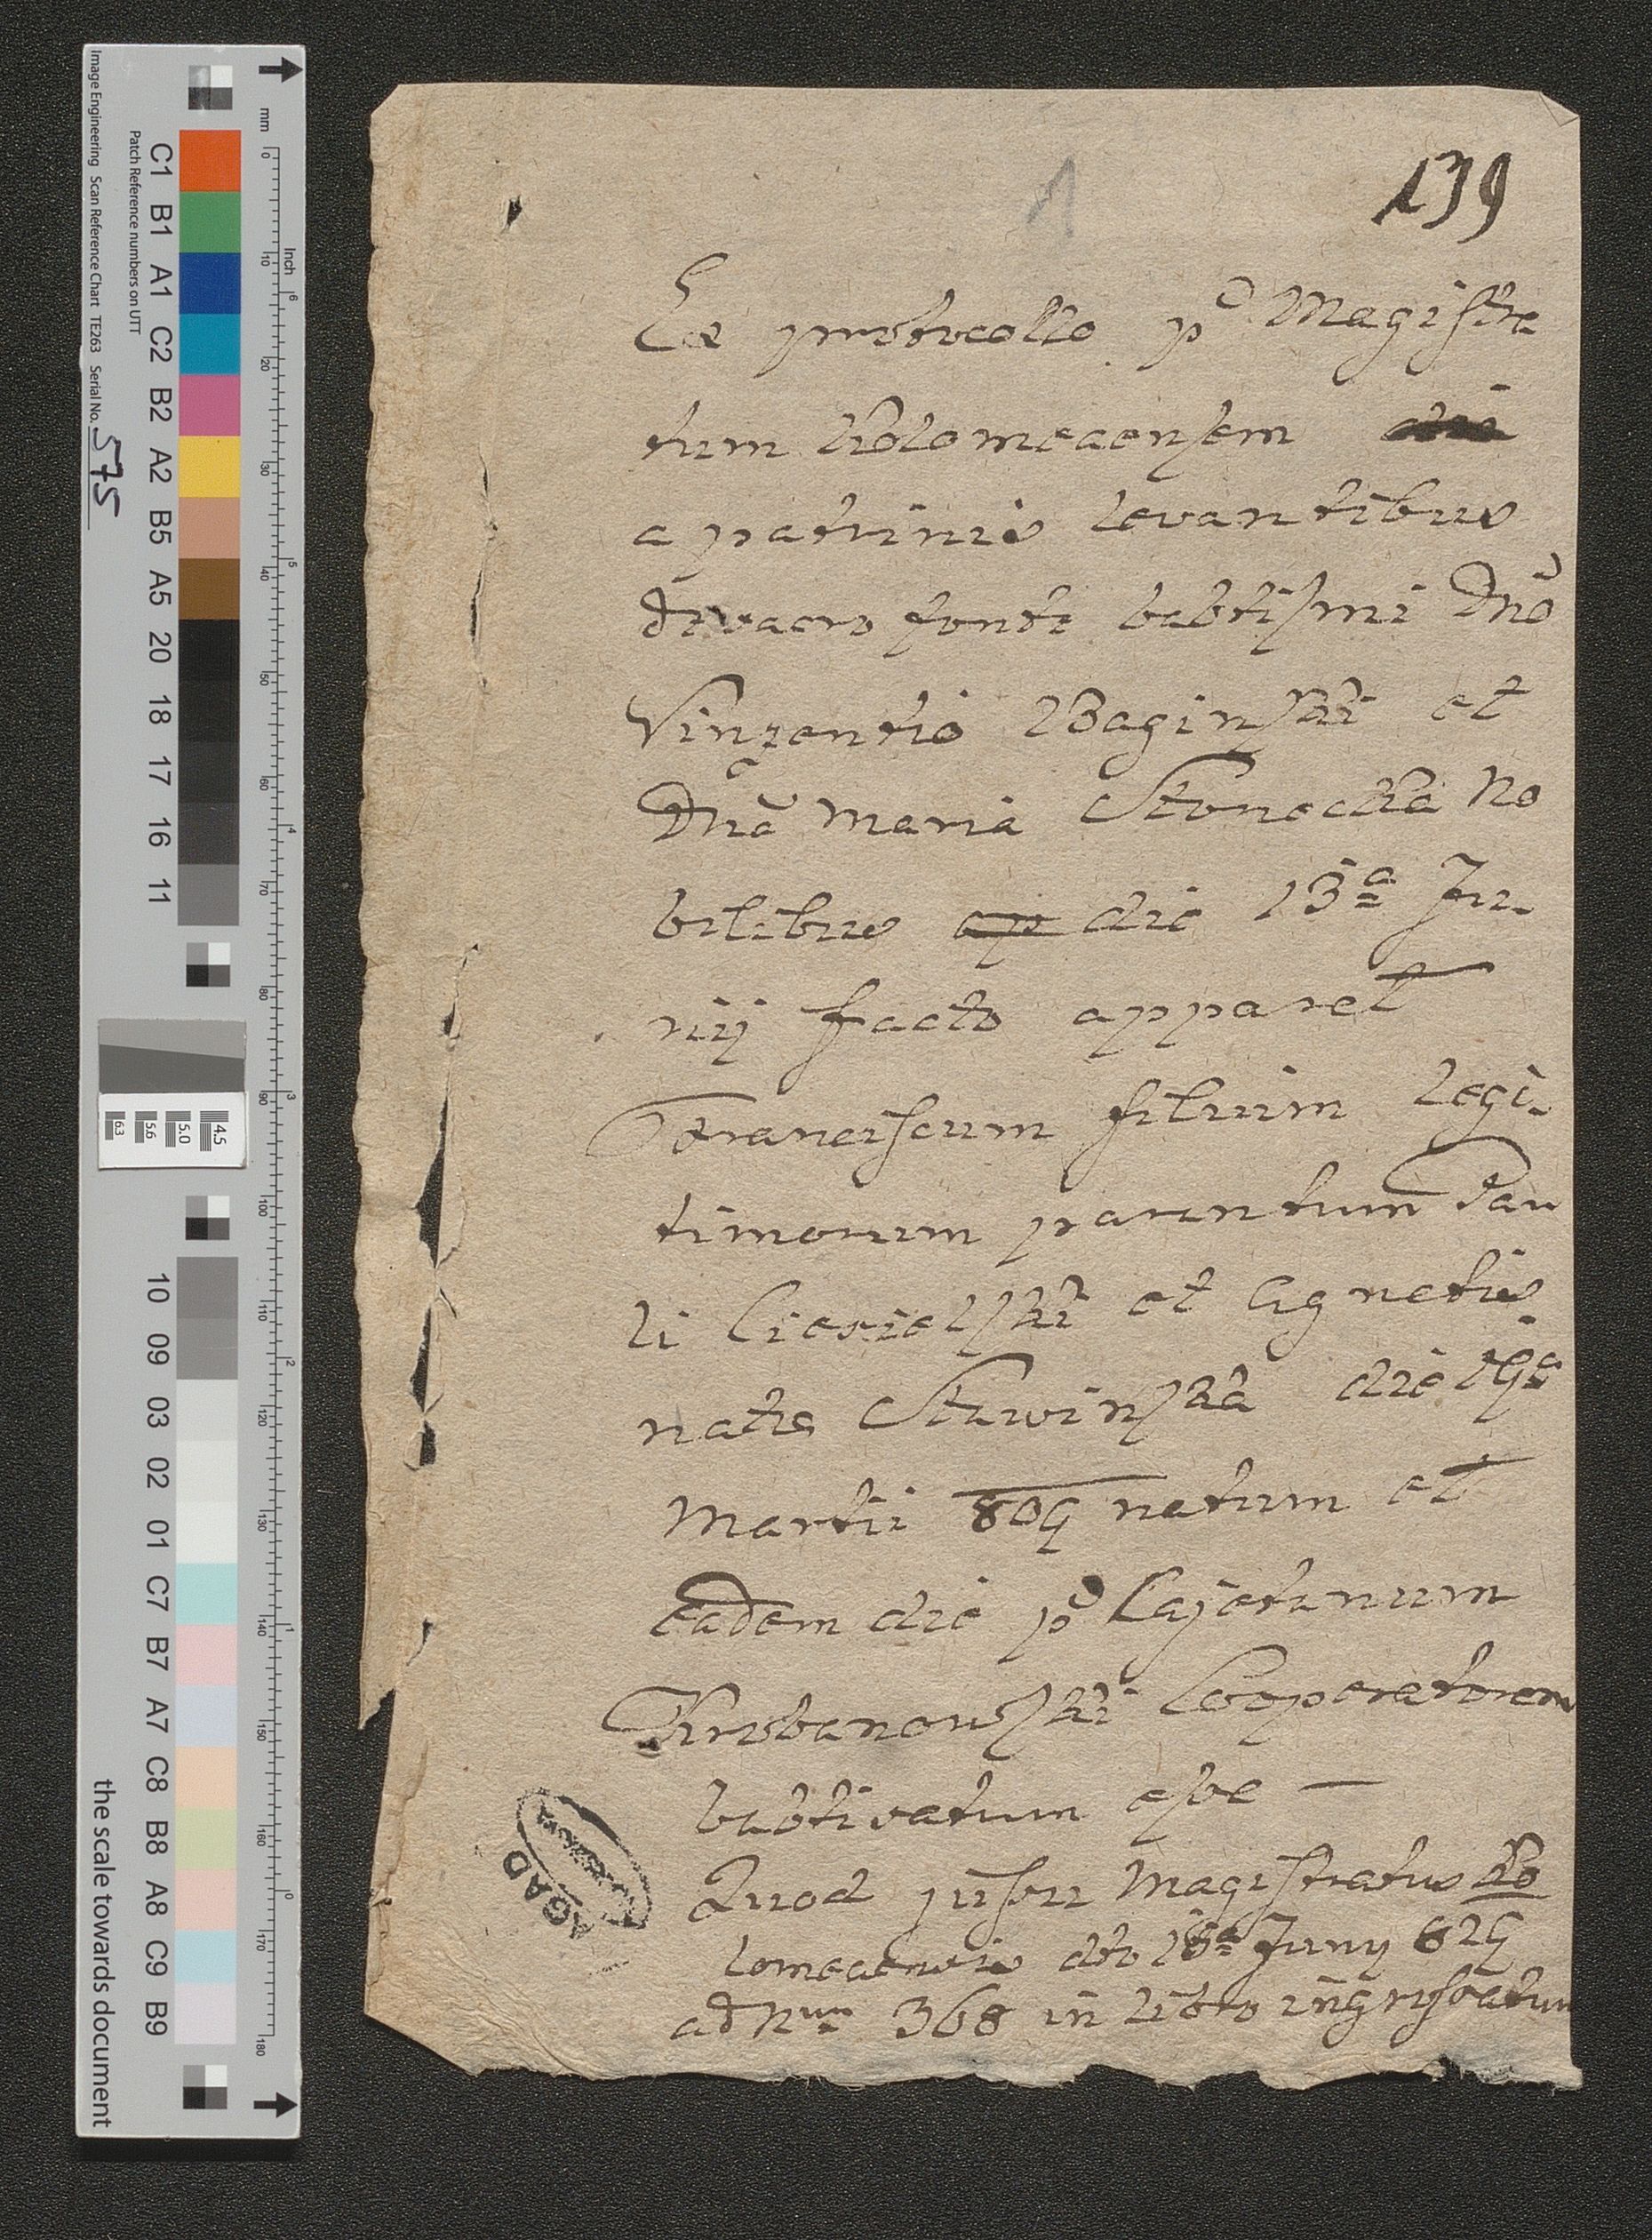 139
1
Ex protocollo p Magistra
tum Kolomeaensem
a patrinis levantibus
de sacro fonte babtismi Dno
Vinzentio Baginski et
Dna Maria Stonecka No
bilibus ap die 13a Ju-
nij facto apparet
Franciscum filium legi-
timorum parentum Pau
li Ciesielski et Agnetis
natae die 19a
Martii 809 natum et
eadem die p Cajetanum
Urbanowski Cooperatorem
babtisatum esse —
Quod jussu Magistratus Ko
lomeaensis dto 13a Juny 829
ad Num 368 in libro ingrossatum
AGAD
Image Engineering Scan Reference Chart TE263 Serial No. 575
Patch Reference numbers on UTT
mm 0 10 20 30 40 50 60 70 80 90 100 110 120 130 140 150 160 170 180
Inch 6 5 4 3 2 1 0
C1 B1 A1 C2 B2 A2 B5 A5 20 18 17 16 11
4.5
5.0
5.6
6.3
10 09 03 02 01 C7 B7 A7 C8 B8 A8 C9 B9
the scale towards document